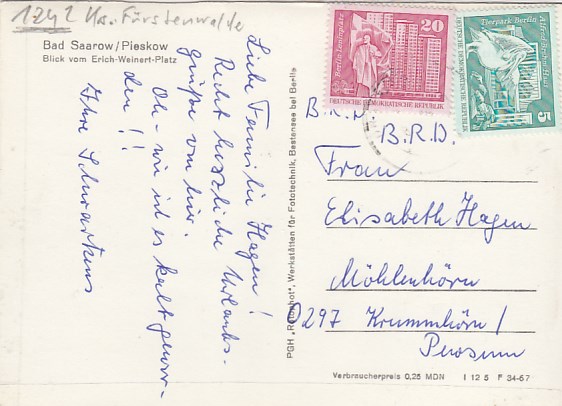 1242 Kr. Fürstenwalde
Bad Saarow/Pieskow
Blick vom Erich-Weinert-Platz
Liebe Familie Hagen!
Recht herzliche Urlaubs-
grüße von hier.
Oh - wie ist es kalt gewor-
den!!
Ihre
PGH „Rotophot“, Werkstätten für Fototechnik, Bestensee bei Berlin
20
Berlin, Leninplatz
DEUTSCHE DEMOKRATISCHE REPUBLIK
Tierpark Berlin
Alfred-Brehm-Haus
5
DEUTSCHE DEMOKRATISCHE REPUBLIK
B.R.D.
Frau
Elisabeth Hagen
Möhlenhörn
0297 Krummhörn/
Pewsum
Verbraucherpreis 0,25 MDN I 12 5 F 34-67